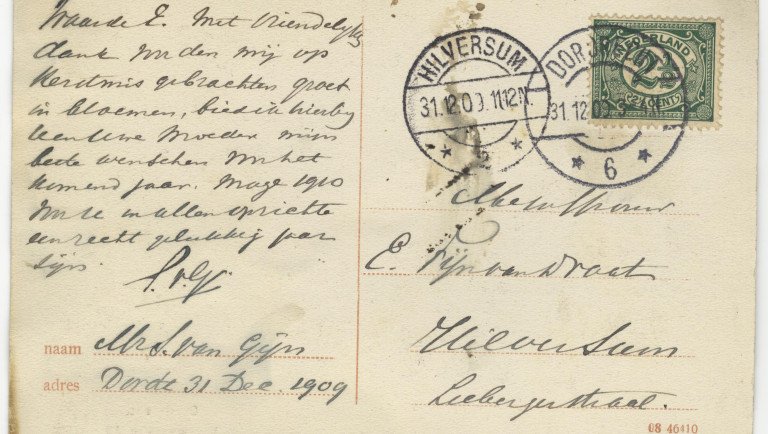 Waarde E. Met vriendelyke
dank voor den mij op
Kerstmis gebrachten groet
in bloemen, bied ik hierby
U en Uwe Moeder mijn
beste wenschen voor het
komend jaar. Moge 1910
voor U in allen oprichte
een recht gelukkig jaar
zijn.
S.v.G.
naam Mr S. van Gijn
adres Dordt 31 Dec. 1909
HILVERSUM
31.12.09 11-12N.
DOR
31.12.09
6
NEDERLAND
2½
CENT
Mevrouw
E. van Draat
Hilversum
Liebergerstraat.
08 46410